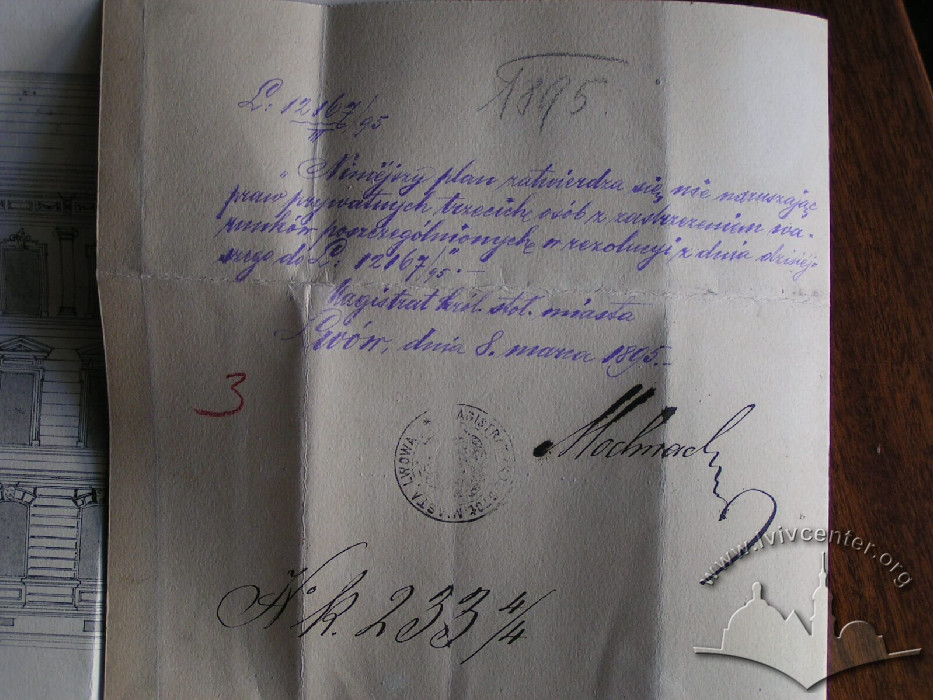 1895.
L: 12167/95
III
"Niniejszy plan zatwierdza się, nie naruszając
praw prywatnych trzecich osób z zastrzeżeniem wa-
runków poszczególnionych w rezolucyi z dnia dzisiej-
szego do L: 12167/95".—
Magistrat król. stoł. miasta
Lwów, dnia 8. marca 1895.—
3
MAGISTRAT KR. STOŁ. MIASTA LWOWA
Mochnacki
N⁰ k. 233 4/4
www.lvivcenter.org